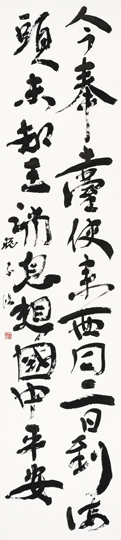 今奉臺使來西月二日到海
頭未知王消息想國中平安